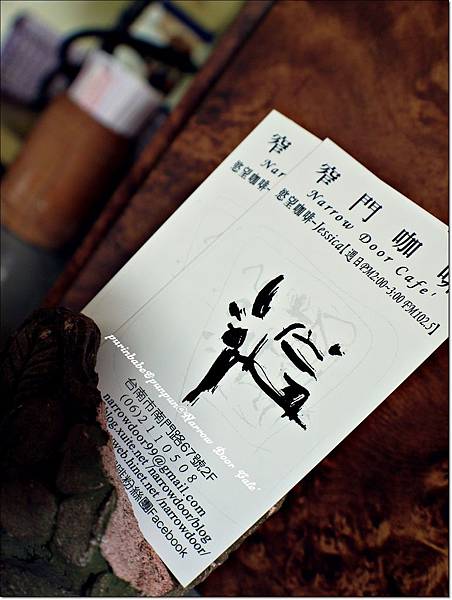 窄
Nar
慾望咖啡-
窄門咖啡
Narrow Door Cafe'
慾望咖啡-Jessica【週日PM2:00~3:00 FM102.5】
purinbabe&punpun@Narrow Door Cafe'
台南市南門路67號2F
(06)2110508
narrowdoor99@gmail.com
blog.xuite.net/narrowdoor/blog
web.hinet.net/narrowdoor/
啡粉絲團Facebook